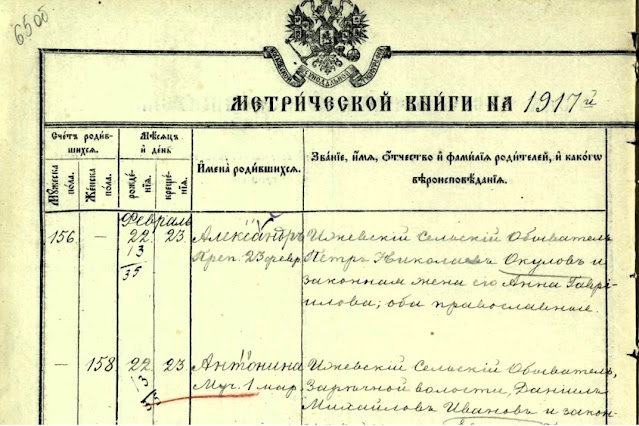 65об
МЕТРИЧЕСКОЙ КНИГИ НА 1917й
Счетъ родившихся.
Мѣсяцъ и день
Имена родившихся.
Званіе, имя, отчество и фамилія родителей, и какого вѣроисповѣданія.
Мужеска пола.
Женска пола.
рожденія.
крещенія.
Февраль
156 — 22 23 Александръ Ижевскій Сельскій Обыватель
13 Преп. 23 февр. Петръ Николаевъ Окуловъ и
35 законная жена его Анна Гаврі-
илова; оба православные.
— 158 22 23 Антонина Ижевскій Сельскій Обыватель,
Муч. 1 мар. Зарѣчной волости, Даніилъ
Михайловъ Ивановъ и закон-